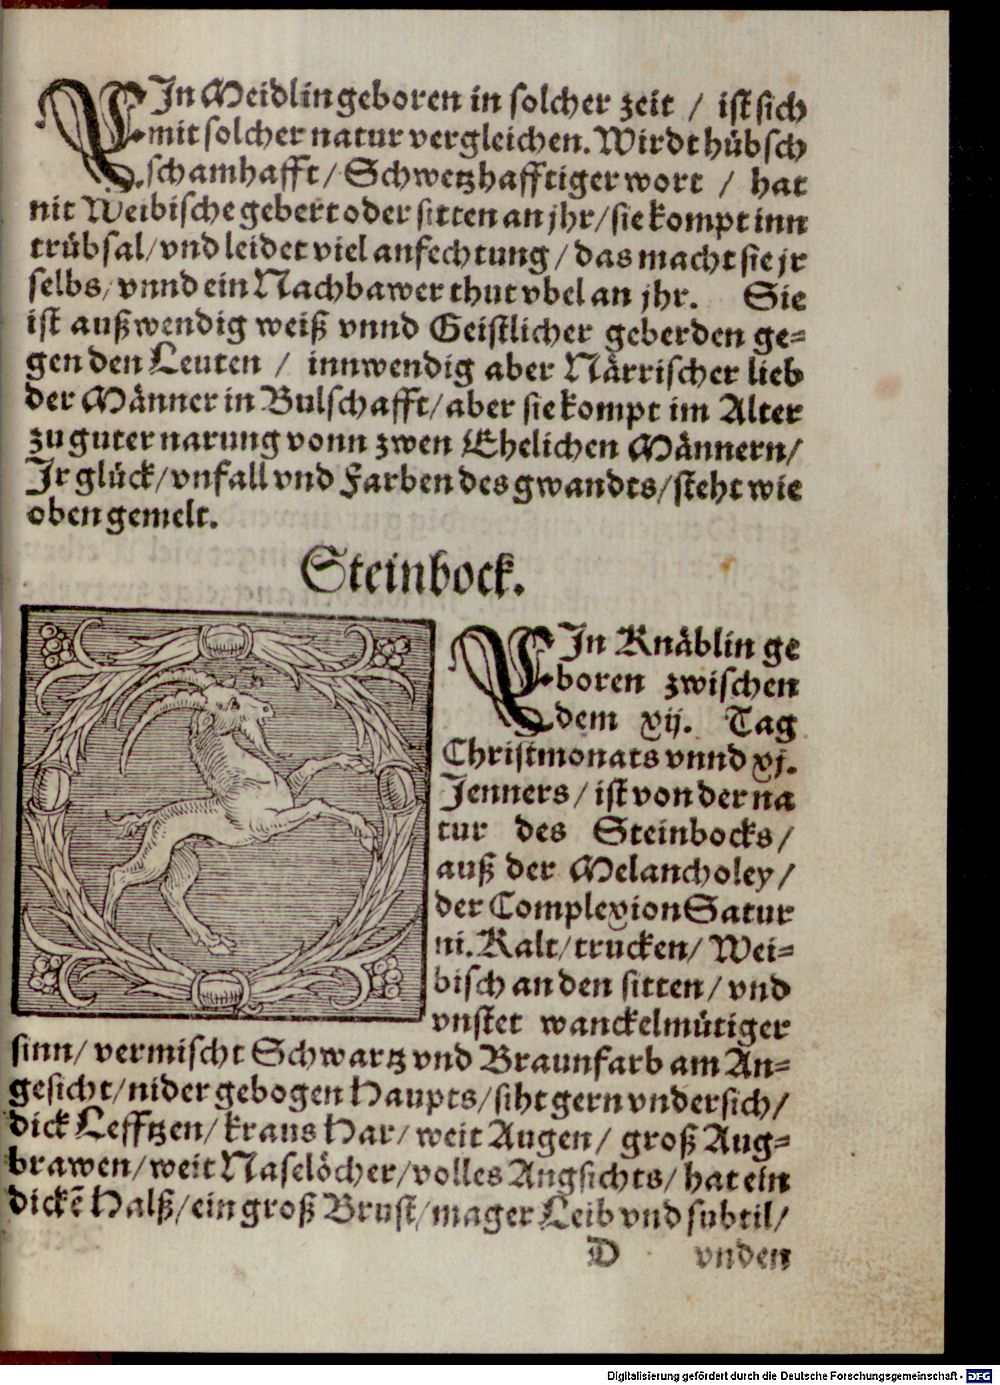 EIn Meidlin geboren in solcher zeit / ist sich
mit solcher natur vergleichen. Wirdt hübsch
schamhafft / Schwetzhafftiger wort / hat
nit Weibische gebert oder sitten an jhr / sie kompt inn
trübsal / vnd leidet viel anfechtung / das macht sie jr
selbs / vnnd ein Nachbawer thut vbel an jhr. Sie
ist außwendig weiß vnnd Geistlicher geberden ge=
gen den Leuten / innwendig aber Närrischer lieb
der Männer in Bulschafft / aber sie kompt im Alter
zu guter narung vonn zwen Ehelichen Männern /
Jr glück / vnfall vnd Farben des gwandts / steht wie
oben gemelt.
Steinbock.
EIn Knäblin ge
boren zwischen
dem xij. Tag
Christmonats vnnd xj.
Jenners / ist von der na
tur des Steinbocks /
auß der Melancholey /
der Complexion Satur
ni. Kalt / trucken / Wei=
bisch an den sitten / vnd
vnstet wanckelmütiger
sinn / vermischt Schwartz vnd Braunfarb am An=
gesicht / nider gebogen Haupts / siht gern vndersich /
dick Lefftzen / kraus Har / weit Augen / groß Aug=
brawen / weit Naselöcher / volles Angsichts / hat ein
dickē Halß / ein groß Brust / mager Leib vnd subtil /
D vnden
Digitalisierung gefördert durch die Deutsche Forschungsgemeinschaft - DFG